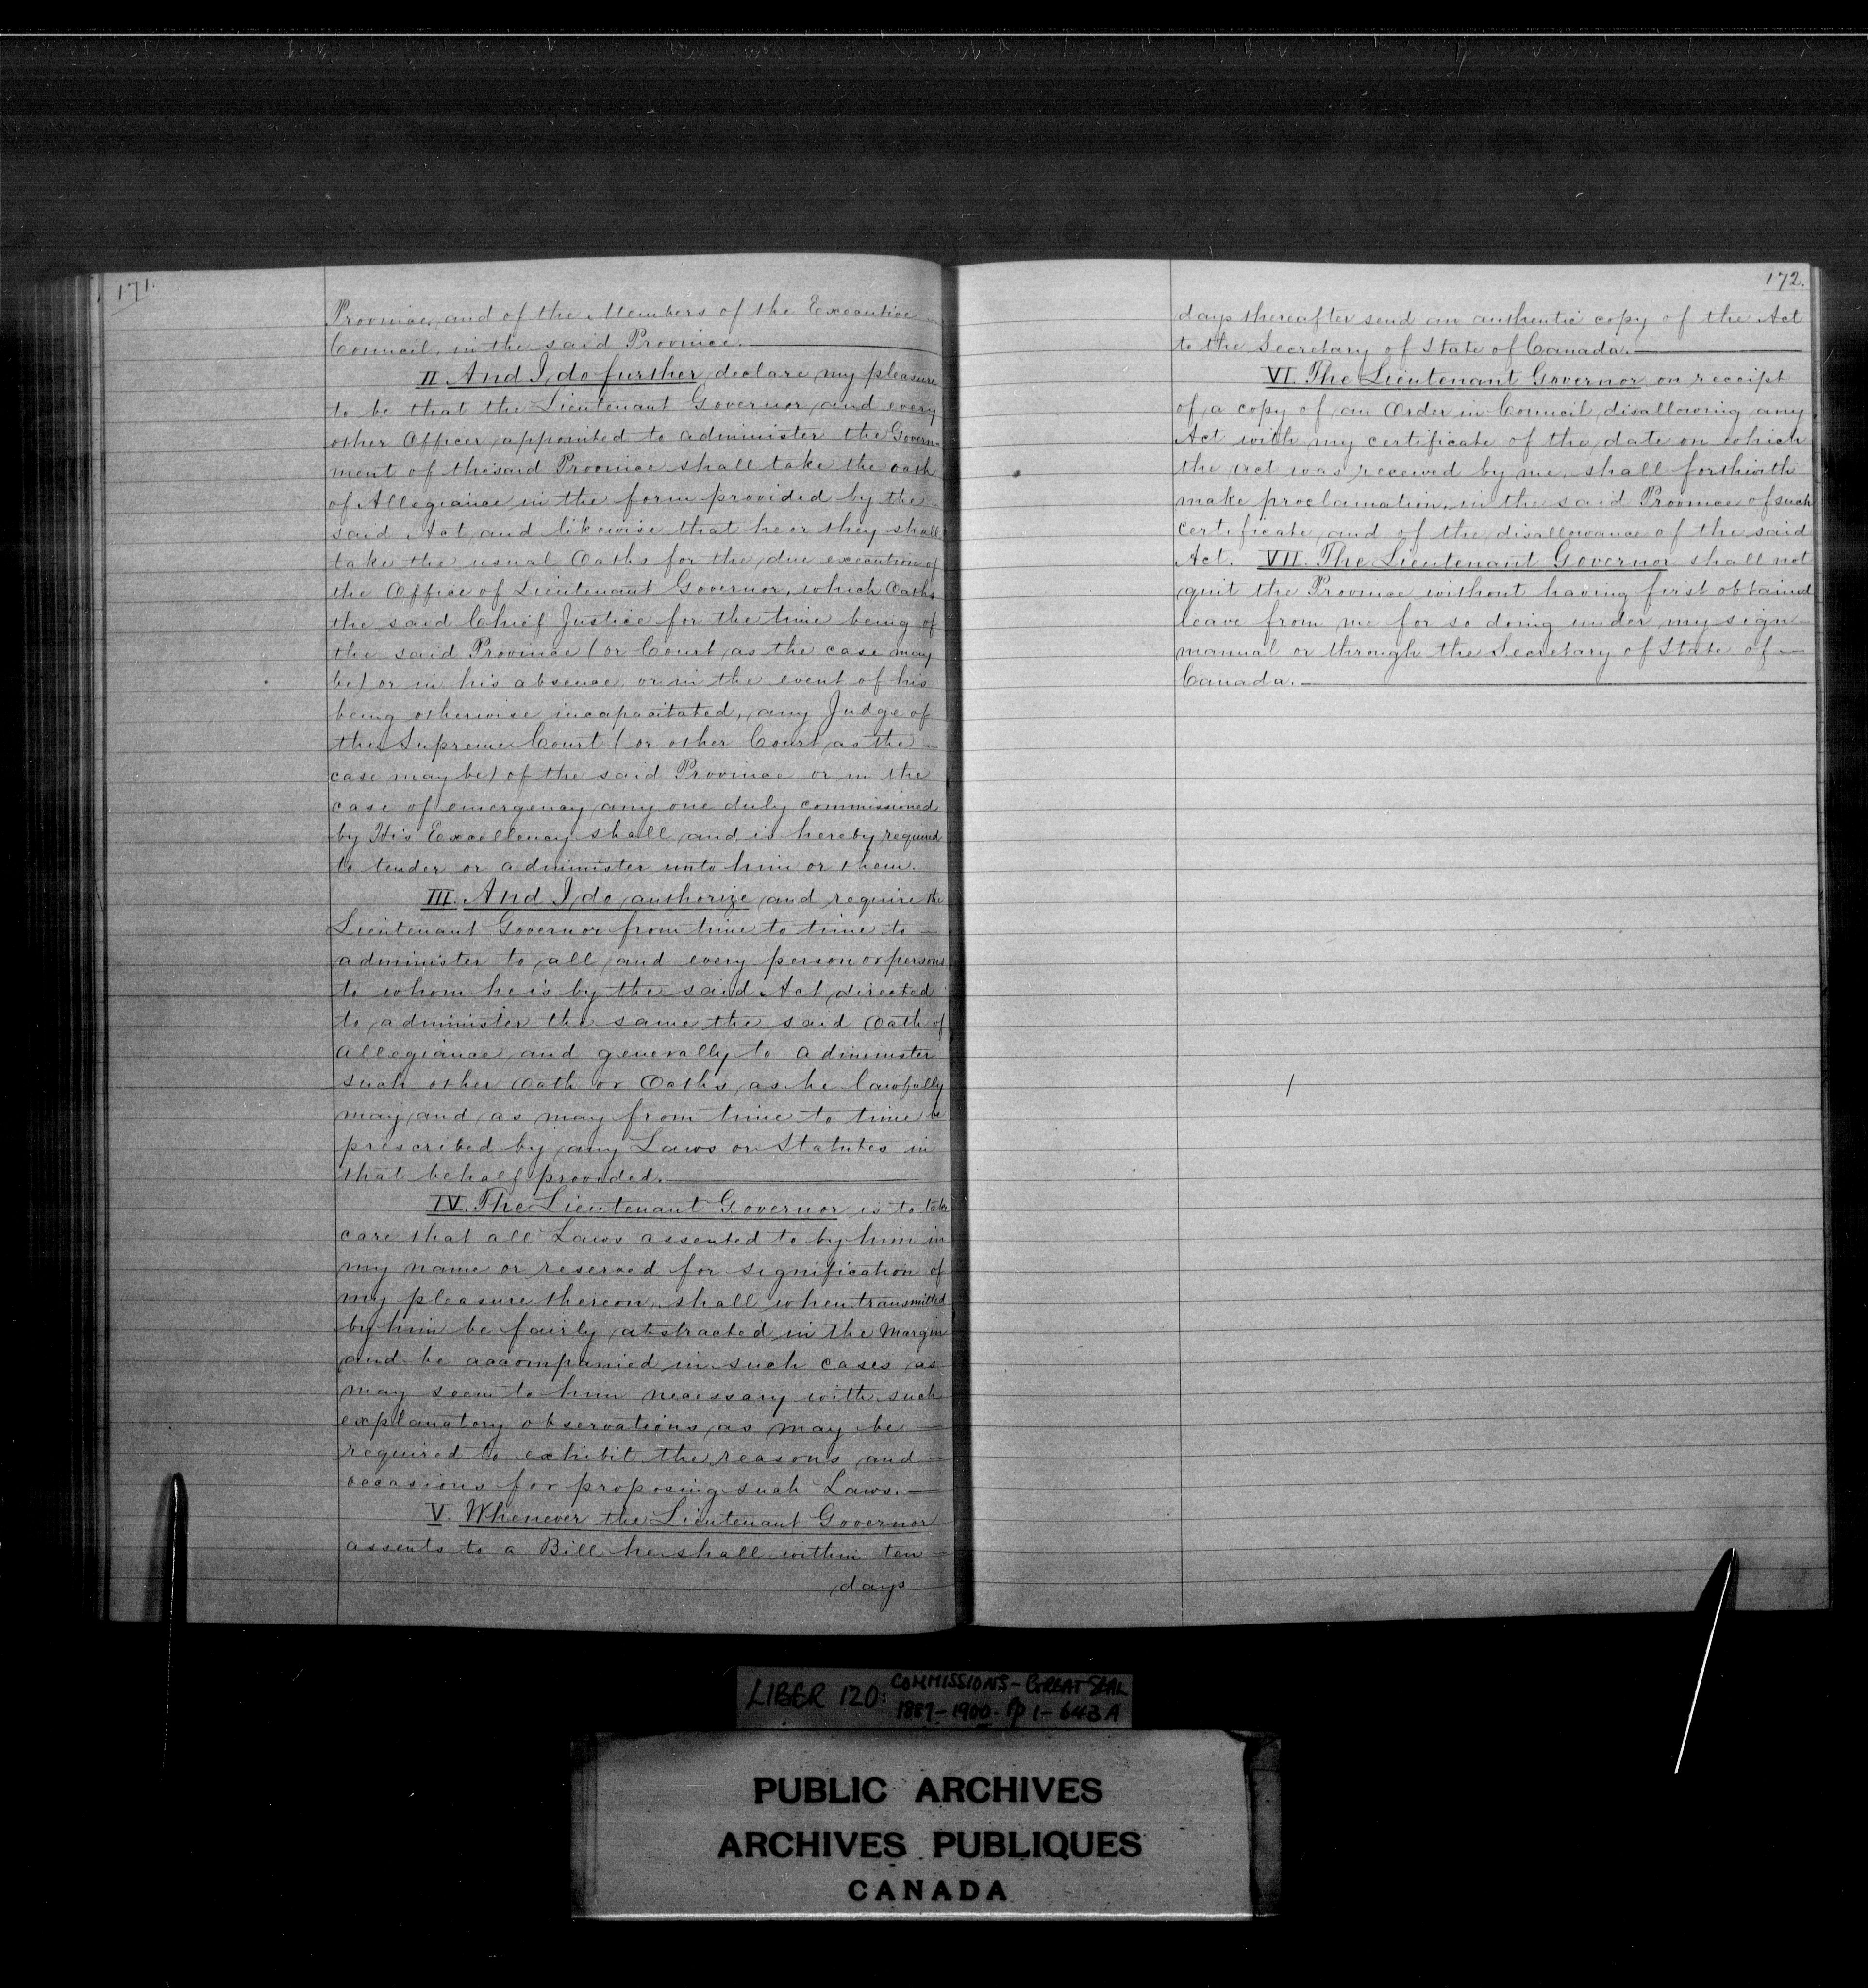 171.
Province, and of the Members of the Executive
Council, in the said Province.
II. And I, do further, declare my pleasure
to be that the Lieutenant Governor, and every
other Officer, appointed to administer the Govern-
ment of the said Province shall take the oath
of Allegiance in the form provided by the
said Act, and likewise that he or they shall
take the usual Oaths for the due execution of
the Office of Lieutenant Governor, which Oaths
the said Chief Justice for the time being of
the said Province (or Court, as the case may
be) or in his absence or in the event of his
being otherwise incapacitated, any Judge of
the Supreme Court (or other Court, as the
case may be) of the said Province or in the
case of emergency any one duly commissioned
by His Excellency shall and is hereby required
to tender or administer unto him or them.
III. And I, do, authorize and require the
Lieutenant Governor from time to time to
administer to all and every person or persons
to whom he is by the said Act directed
to administer the same the said Oath of
allegiance and generally to administer
such other Oath or Oaths, as he lawfully
may and as may from time to time be
prescribed by any Laws or Statutes in
that behalf provided.
IV. The Lieutenant Governor is to take
care that all Laws assented to by him in
my name or reserved for signification of
my pleasure thereon, shall when transmitted
by him be fairly abstracted in the Margin
and be accompanied in such cases as
may seem to him necessary with such
explanatory observations as may be
required to exhibit the reasons and
occasions for proposing such Laws.
V. Whenever the Lieutenant Governor
assents to a Bill he shall within ten
days
172.
days thereafter send an authentic copy of the Act
to the Secretary of State of Canada.
VI. The Lieutenant Governor on receipt
of a copy of an Order in Council disallowing any
Act with my certificate of the date on which
the act was received by me, shall forthwith
make proclamation, in the said Province of such
certificate and of the disallowance of the said
Act. VII. The Lieutenant Governor shall not
quit the Province without having first obtained
leave from me for so doing under my sign
manual or through the Secretary of State of
Canada.
LIBER 120: COMMISSIONS - GREAT SEAL
1887-1900. pp 1-643A
PUBLIC ARCHIVES
ARCHIVES PUBLIQUES
CANADA